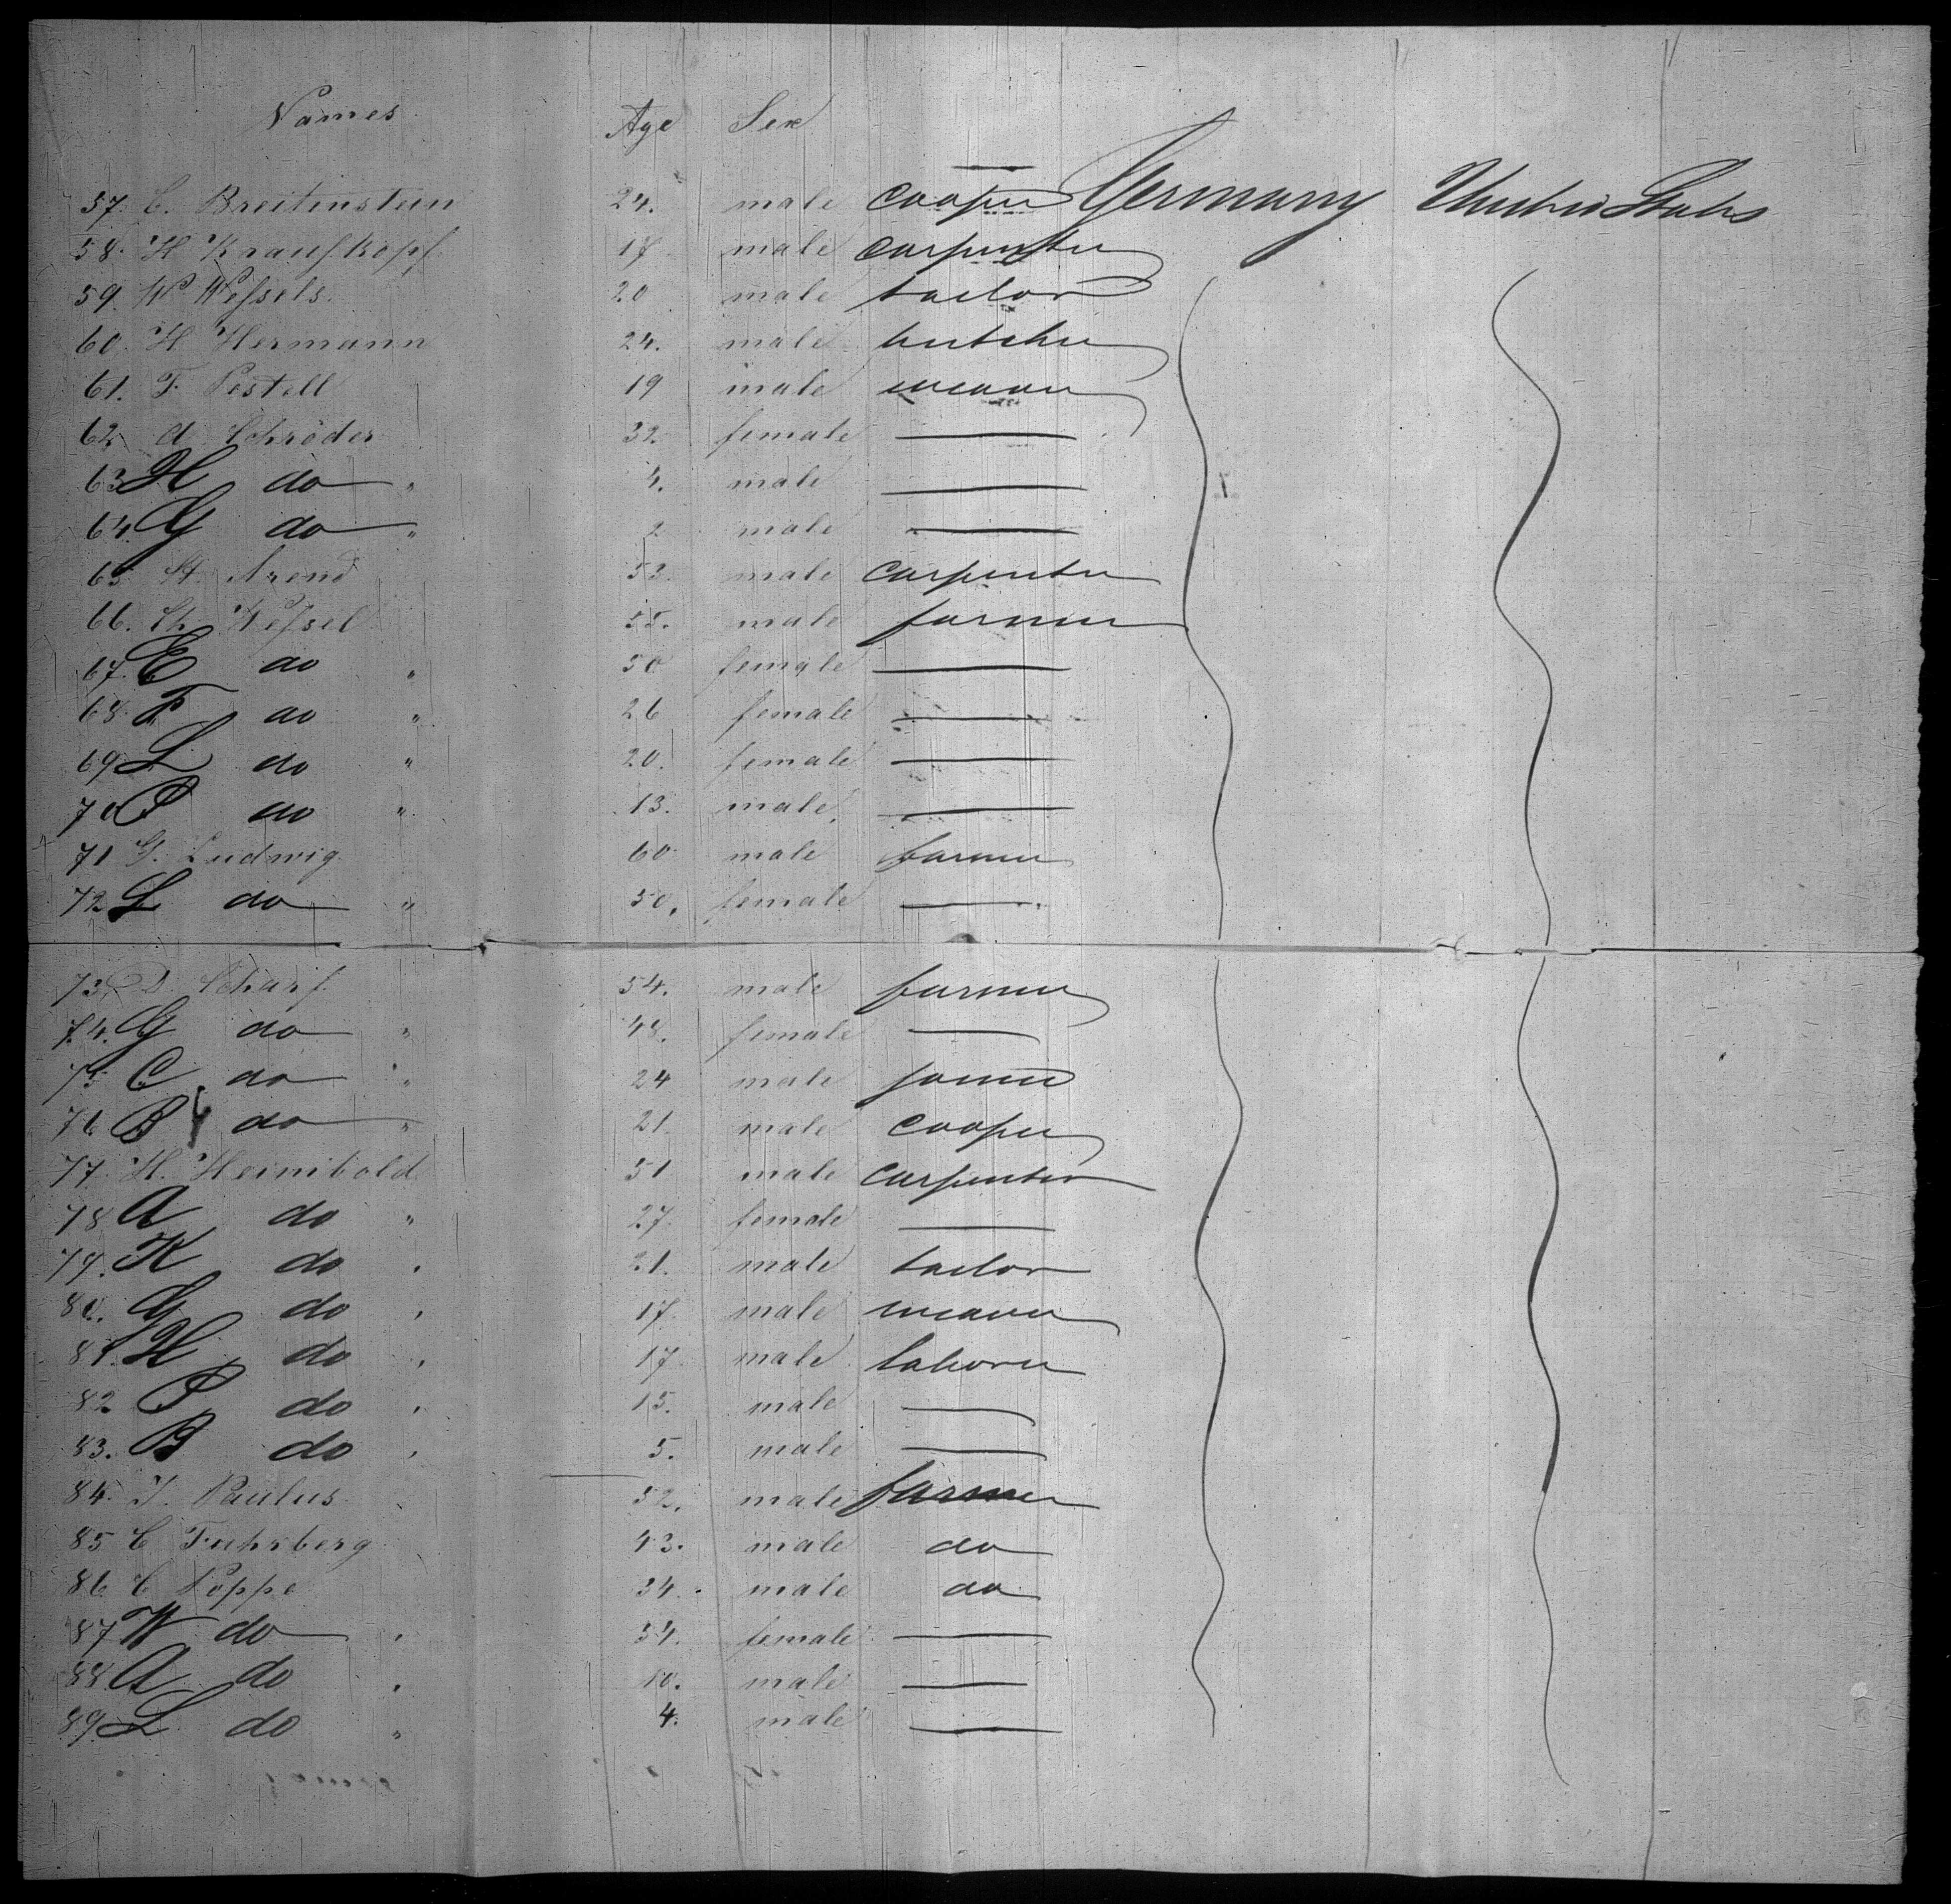 Names Age Sex
57. C. Breitenstein 24. male cooper Germany United States
58. H Kraufkopf 18 male carpenter
59. W Weſsels. 20 male tailor
60. H Hermann 24. male butcher
61. F. Pestell 19 male weaver
62. A Schröder 32. female
63 H do " 4. male
64. G do " 2 male
65 H. Arend 53. male carpenter
66. Ch. Weſsel 55. male farmer
67. E do " 50 female
68. F do " 26 female
69 L do " 20. female
70 P do " 13. male
71 G. Ludwig 60 male farmer
72 L do " 50. female
73 D. Scharf 54. male farmer
74. G do " 48. female
75 C do " 24 male joiner
76 B do " 21. male cooper
77. H. Heinibold 51 male carpenter
78 A do " 27. female
79. K do " 21. male tailor
80. G do " 17. male weaver
81. H do " 17 male laborer
82 P do " 15. male
83. B do " 5. male
84. J. Paulus 52. male farmer
85 C Fuhrberg 43. male do
86 C Poppe 34. male do
87 W do " 34. female
88 A do " 10. male
89 L do " 4. male